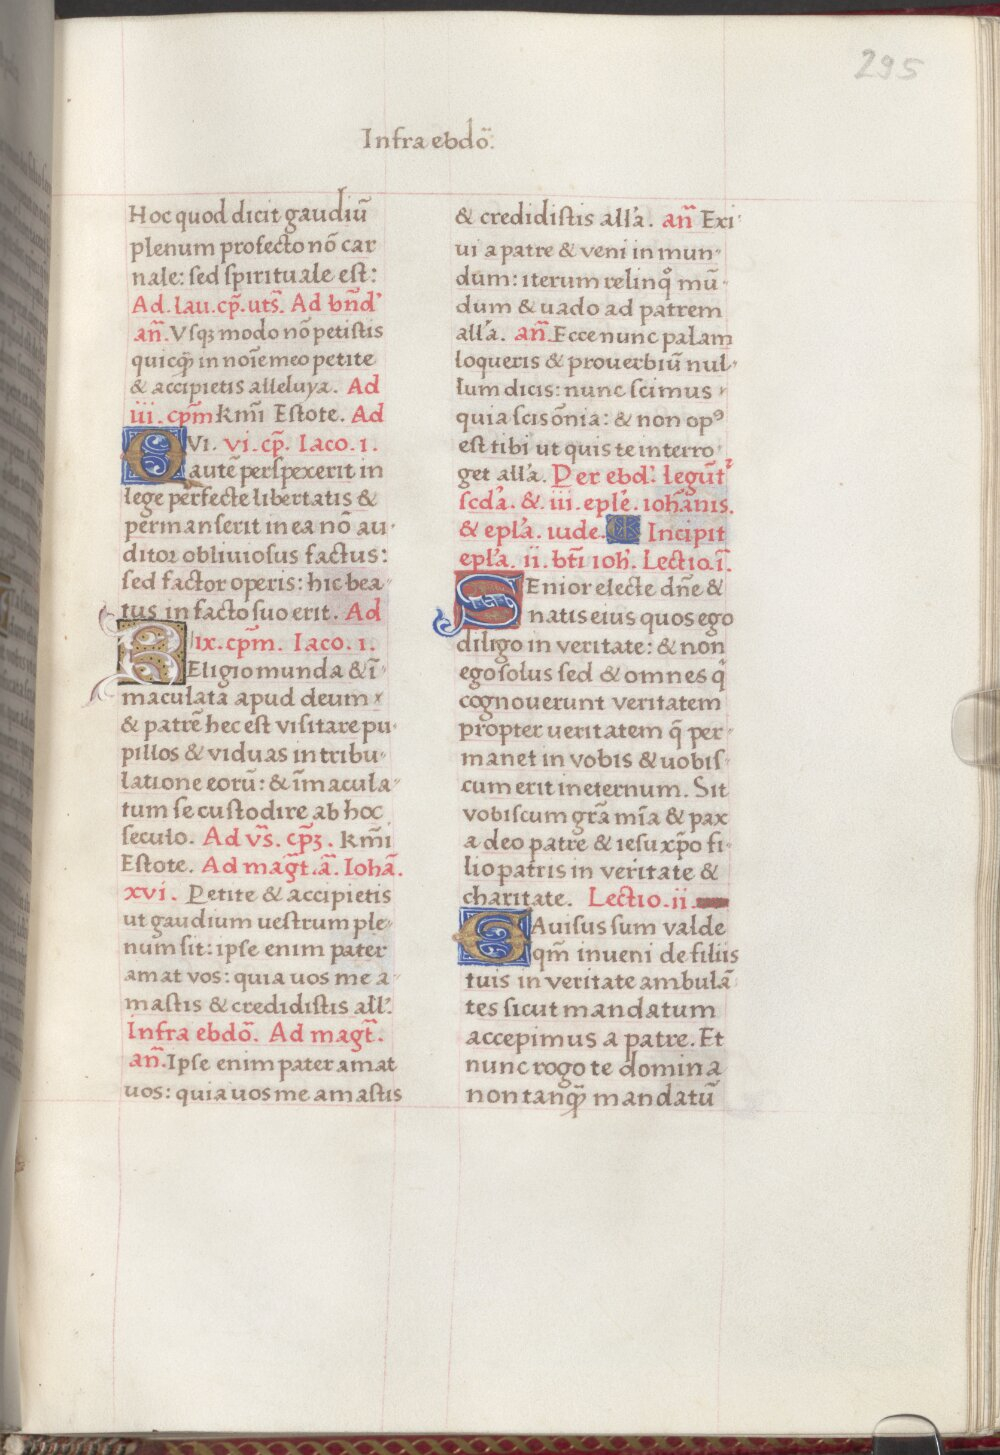 295
Infra ebdõ.
Hoc quod dicit gaudiũ
plenum profecto nõ car
nale: sed spirituale est:
Ad. lau. cp̃. uts̃. Ad bñd'
añ. Vsqz modo nõ petistis
quicq̃ in noĩe meo petite
& accipietis alleluya. Ad
iii. cpm̃ kmĩ Estote. Ad
Vi. vi. cp̃. Iaco. 1.
Q autẽ perspexerit in
lege perfecte libertatis &
permanserit in ea nõ au
ditor obliuiosus factus:
sed factor operis: hic bea
tus in facto suo erit. Ad
ix. cpm̃. Iaco. 1.
REligio munda & ĩ
maculata apud deum
& patrẽ hec est visitare pu
pillos & viduas in tribu
latione eorũ: & ĩmacula
tum se custodire ab hoc
seculo. Ad vs̃. cp̃z. kmĩ
Estote. Ad magt̃. ã. Iohã.
xvi. Petite & accipietis
ut gaudium uestrum ple
num sit: ipse enim pater
amat vos: quia uos me a
mastis & credidistis all'.
Infra ebdõ. Ad magt̃.
añ. Ipse enim pater amat
uos: quia uos me amastis
& credidistis all'a. añ Exi
ui a patre & veni in mun
dum: iterum relinqo̊ mũ
dum & uado ad patrem
all'a. añ. Ecce nunc palam
loqueris & prouerbiũ nul
lum dicis: nunc scimus
quia scis oñia: & non op9
est tibi ut quis te interro
get all'a. Per ebd'. legũt'
scd'a. &. iii. epl'e. iohãnis.
& epl'a. iude. Incipit
epl'a. ii. btĩ ioh'. Lectio. ĩ.
SEnior electe dñe &
natis eius quos ego
diligo in veritate: & non
ego solus sed & omnes q̃
cognouerunt veritatem
propter ueritatem q̃ per
manet in vobis & uobis
cum erit in eternum. Sit
vobiscum gr̃a mĩa & pax
a deo patre & iesu xp̃o fi
lio patris in veritate &
charitate. Lectio. ii.
GAuisus sum valde
qm̃ inueni de filiis
tuis in veritate ambulã
tes sicut mandatum
accepimus a patre. Et
nunc rogo te domina
non tanq̃ mandatũ